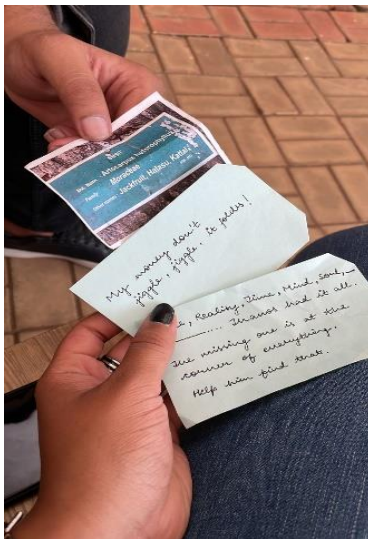 Bot. Name : Artocarpus heterophyllus
Family : Moraceae
Jackfruit, Halasu, Kattal,
My money don't
jiggle, jiggle. it folds!
, Reality, Time, Mind, Soul, _
_ _ _ .... Thanos had it all.
The missing one is at the
corner of everything.
Help him find that.